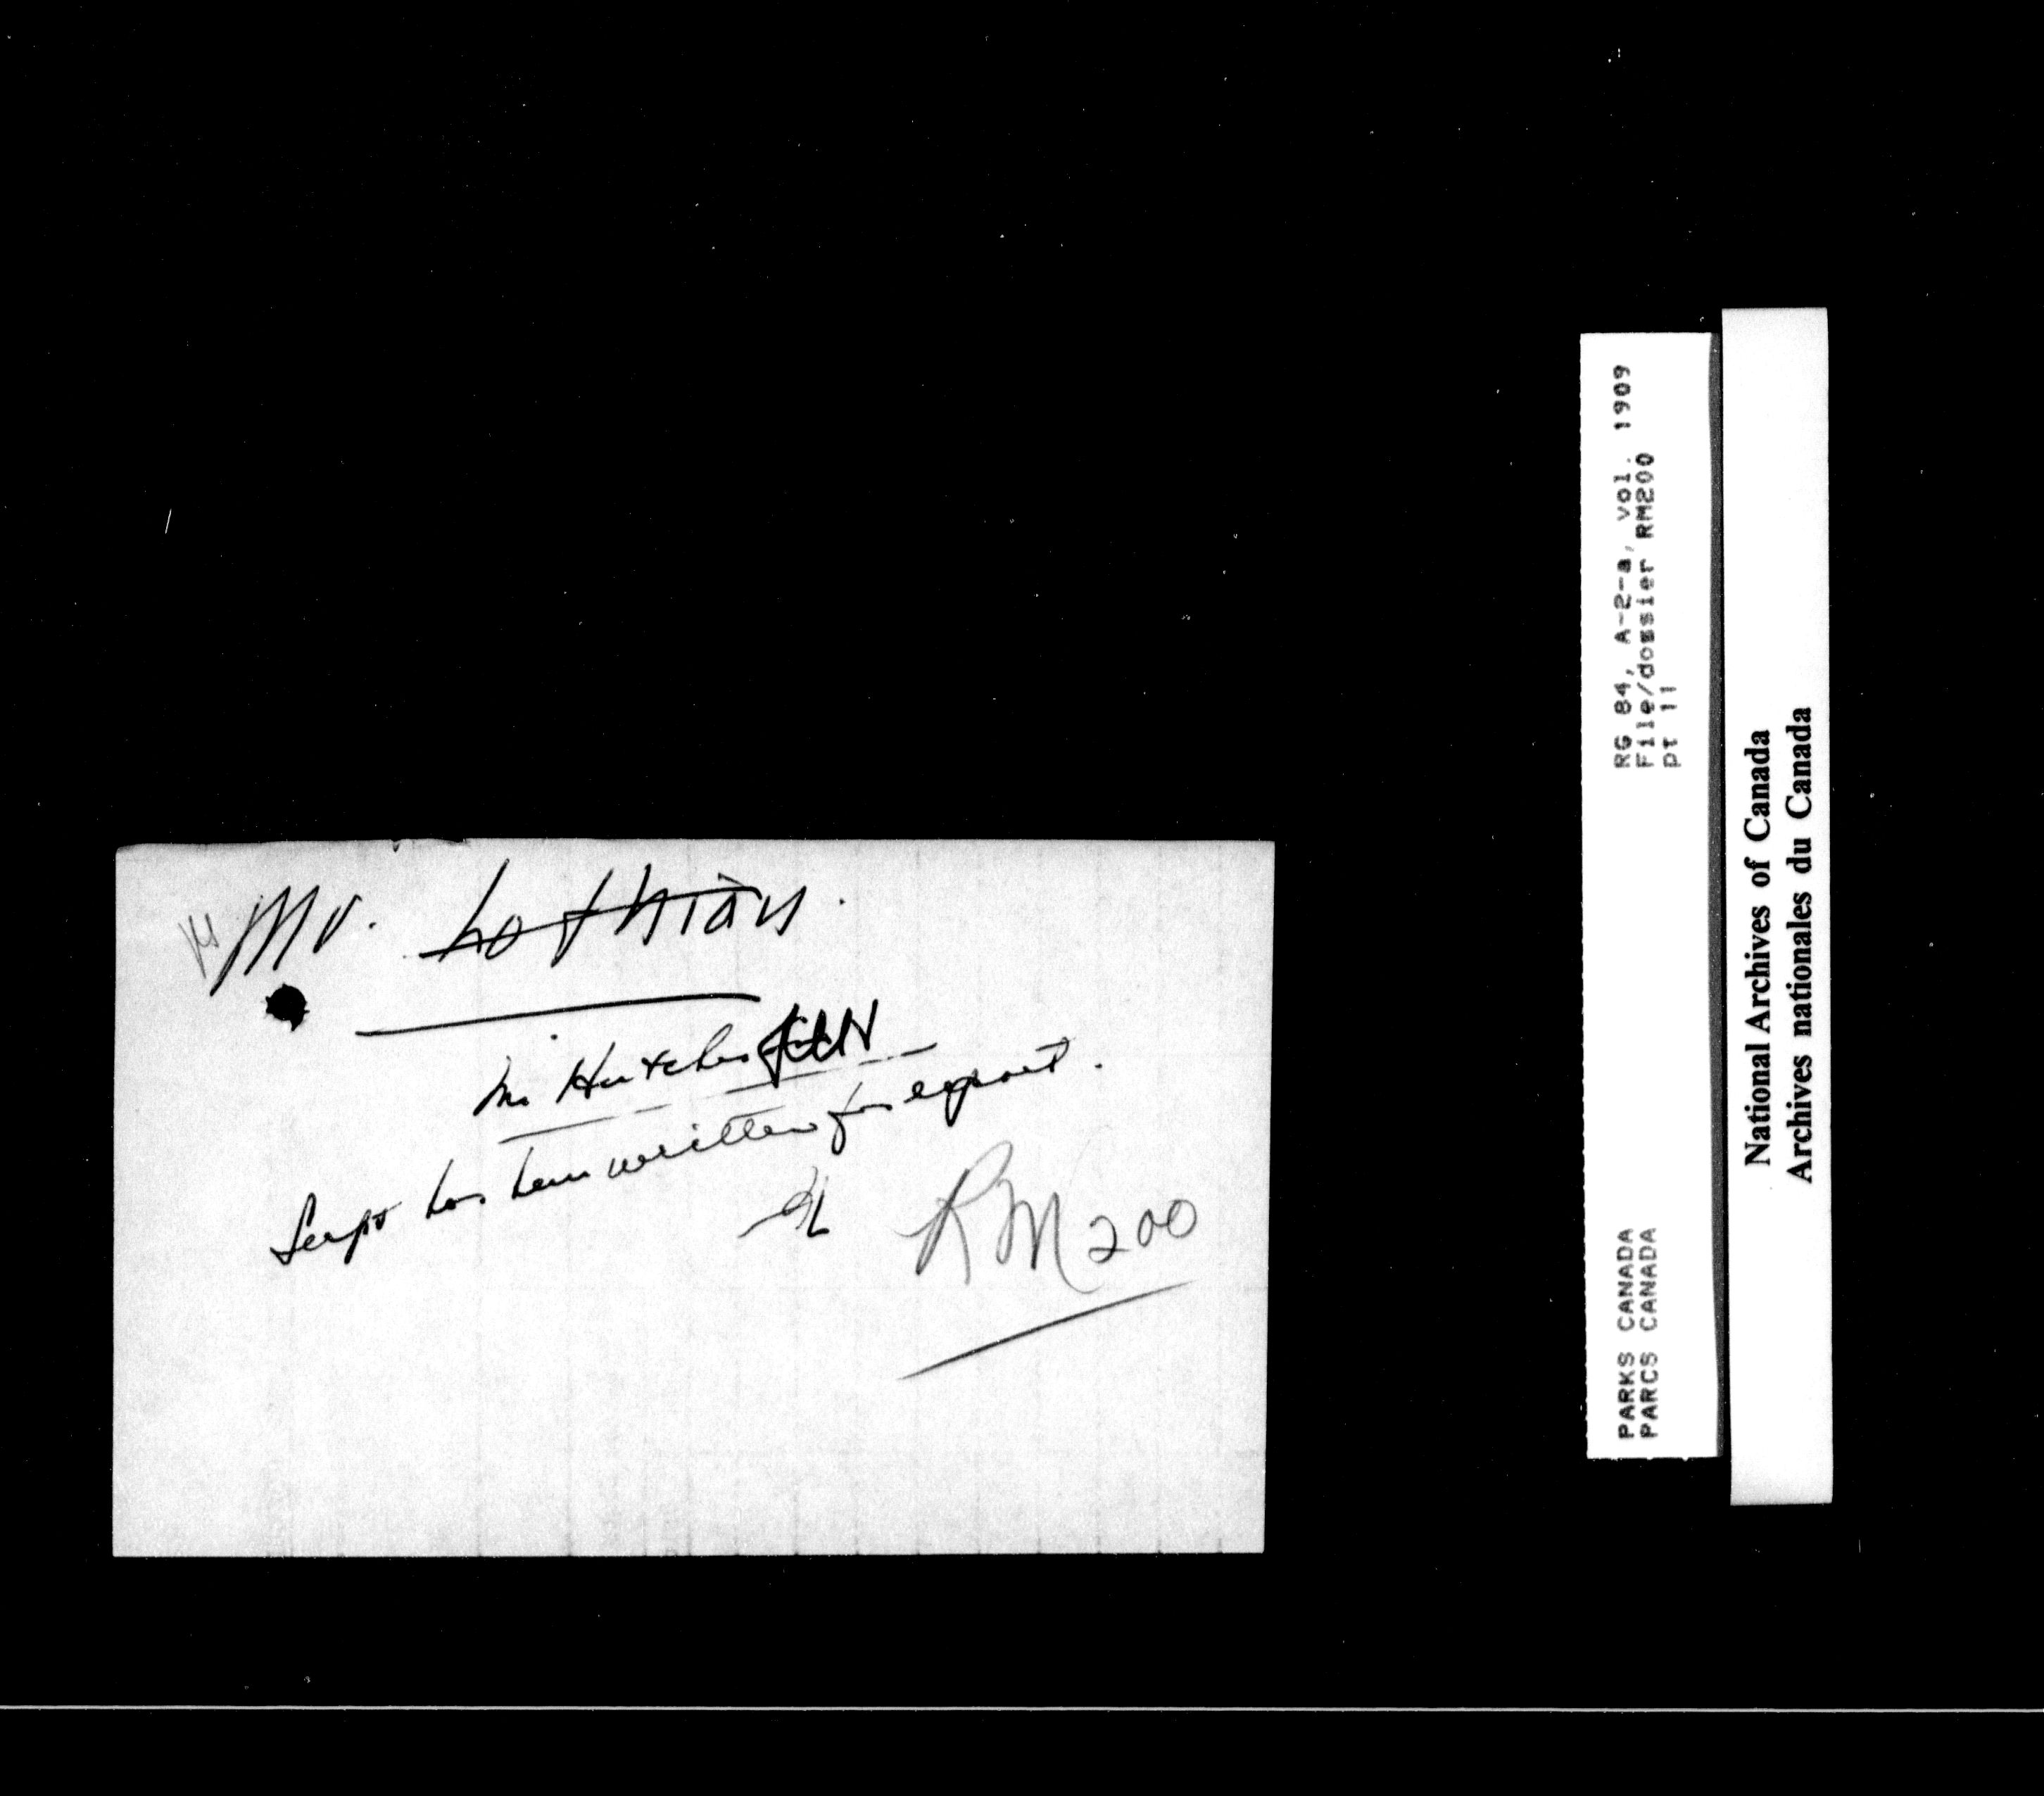 Mr. Lothian.
Mr Hutchison
Supt has been written for report.
RM 200
RG 84, A-2-a, vol. 1909
File/dossier RM200
pt 11
PARKS CANADA
PARCS CANADA
National Archives of Canada
Archives nationales du Canada